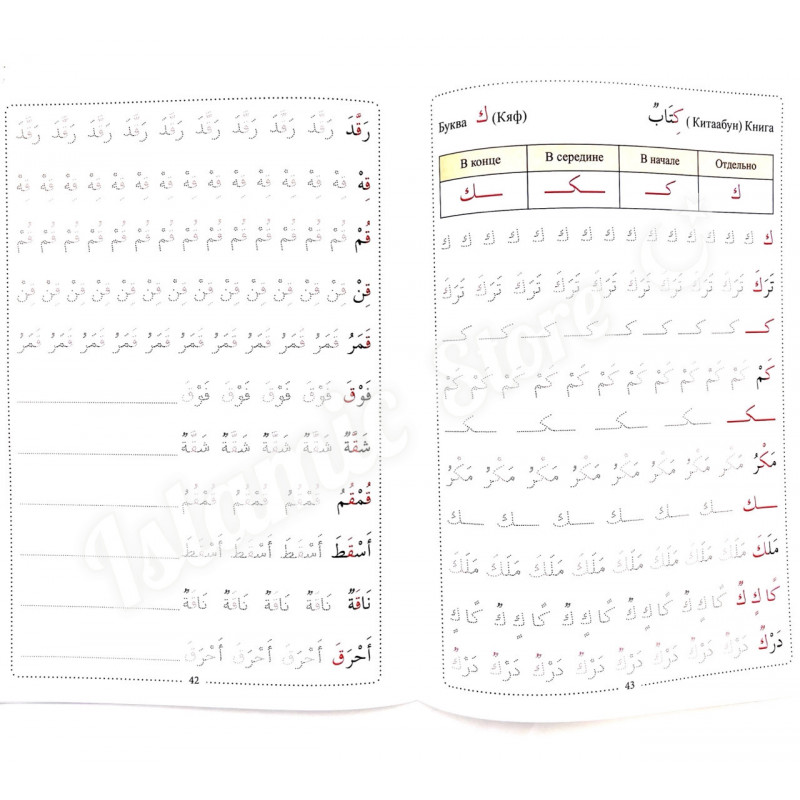 رَقَّدَ رَقَّدَ رَقَّدَ رَقَّدَ رَقَّدَ رَقَّدَ رَقَّدَ رَقَّدَ رَقَّدَ رَقَّدَ
قِهْ قِهْ قِهْ قِهْ قِهْ قِهْ قِهْ قِهْ قِهْ قِهْ قِهْ قِهْ قِهْ قِهْ
قُمْ قُمْ قُمْ قُمْ قُمْ قُمْ قُمْ قُمْ قُمْ قُمْ قُمْ قُمْ قُمْ
قِنْ قِنْ قِنْ قِنْ قِنْ قِنْ قِنْ قِنْ قِنْ قِنْ قِنْ قِنْ
قَمَرُ قَمَرُ قَمَرُ قَمَرُ قَمَرُ قَمَرُ قَمَرُ قَمَرُ قَمَرُ قَمَرُ
فَوْقَ فَوْقَ فَوْقَ فَوْقَ فَوْقَ
شَقَّةٌ شَقَّةٌ شَقَّةٌ شَقَّةٌ شَقَّةٌ
قُمْقُمُ قُمْقُمُ قُمْقُمُ قُمْقُمُ
أَسْقَطَ أَسْقَطَ أَسْقَطَ أَسْقَطَ
نَاقَةٌ نَاقَةٌ نَاقَةٌ نَاقَةٌ نَاقَةٌ
أَحْرَقَ أَحْرَقَ أَحْرَقَ أَحْرَقَ
42
Буква ك (Кяф) كِتَابٌ ( Китаабун) Книга
В конце В середине В начале Отдельно
ـك ـكـ كـ ك
ك ك ك ك ك ك ك ك ك ك ك ك ك ك
تَرَكَ تَرَكَ تَرَكَ تَرَكَ تَرَكَ تَرَكَ تَرَكَ تَرَكَ تَرَكَ
كـ كـ كـ كـ كـ كـ كـ كـ
كَمْ كَمْ كَمْ كَمْ كَمْ كَمْ كَمْ كَمْ كَمْ كَمْ
ـكـ ـكـ ـكـ ـكـ ـكـ ـكـ
مَكْرُ مَكْرُ مَكْرُ مَكْرُ مَكْرُ مَكْرُ مَكْرُ مَكْرُ
ـك ـك ـك ـك ـك ـك ـك
مَلَكَ مَلَكَ مَلَكَ مَلَكَ مَلَكَ مَلَكَ مَلَكَ مَلَكَ
كًا كٍ كٌ كًا كٍ كٌ كًا كٍ كٌ كًا كٍ كٌ كًا كٍ كٌ كًا كٍ كٌ
دَرْكٌ دَرْكٌ دَرْكٌ دَرْكٌ دَرْكٌ دَرْكٌ دَرْكٌ دَرْكٌ
43
Islamic Store